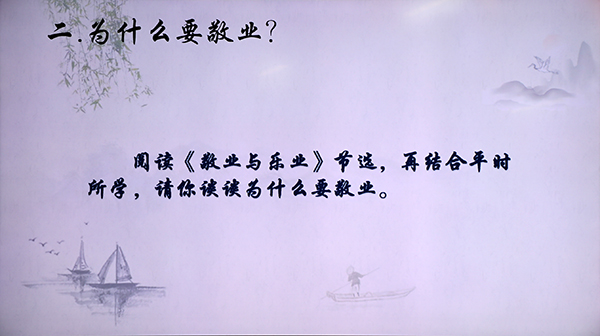 二.为什么要敬业？
阅读《敬业与乐业》节选，再结合平时
所学，请你谈谈为什么要敬业。